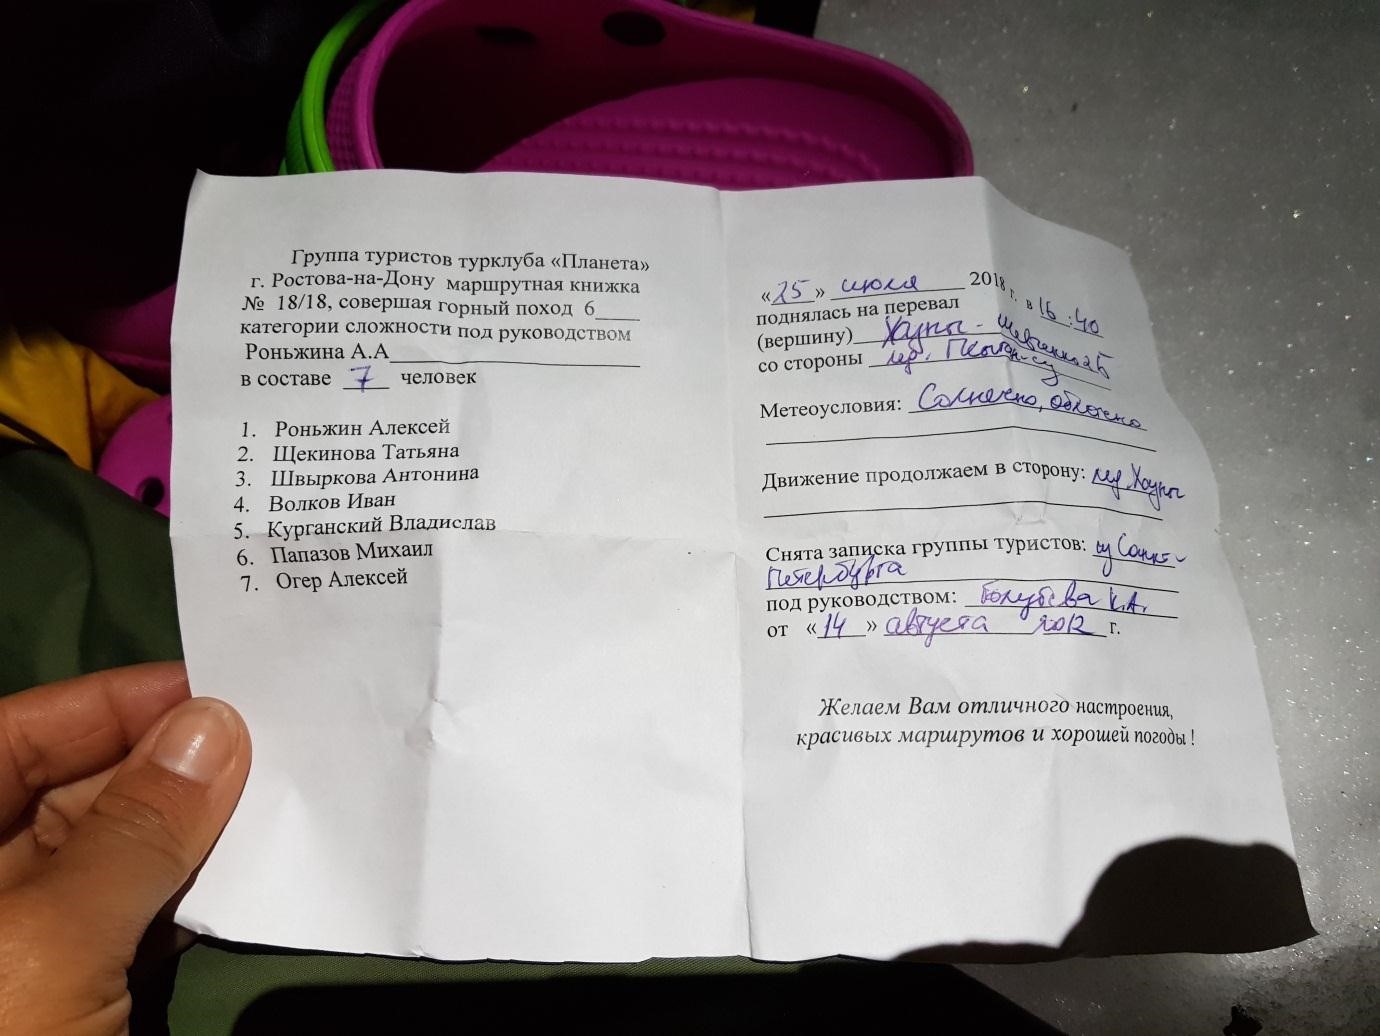 Группа туристов турклуба «Планета»
г. Ростова-на-Дону маршрутная книжка
№ 18/18, совершая горный поход 6
категории сложности под руководством
Роньжина А.А
в составе 7 человек
1. Роньжин Алексей
2. Щекинова Татьяна
3. Швыркова Антонина
4. Волков Иван
5. Курганский Владислав
6. Папазов Михаил
7. Огер Алексей
«25» июля 2018 г. в 16:40
поднялась на перевал
(вершину) Хауты - Шевченко 2Б
со стороны лед.
Метеоусловия: Солнечно, облачно
Движение продолжаем в сторону: лед. Хауты
Снята записка группы туристов: из Санкт-
Петербурга
под руководством: Голубева К.А.
от «14» августа 2012 г.
Желаем Вам отличного настроения,
красивых маршрутов и хорошей погоды !